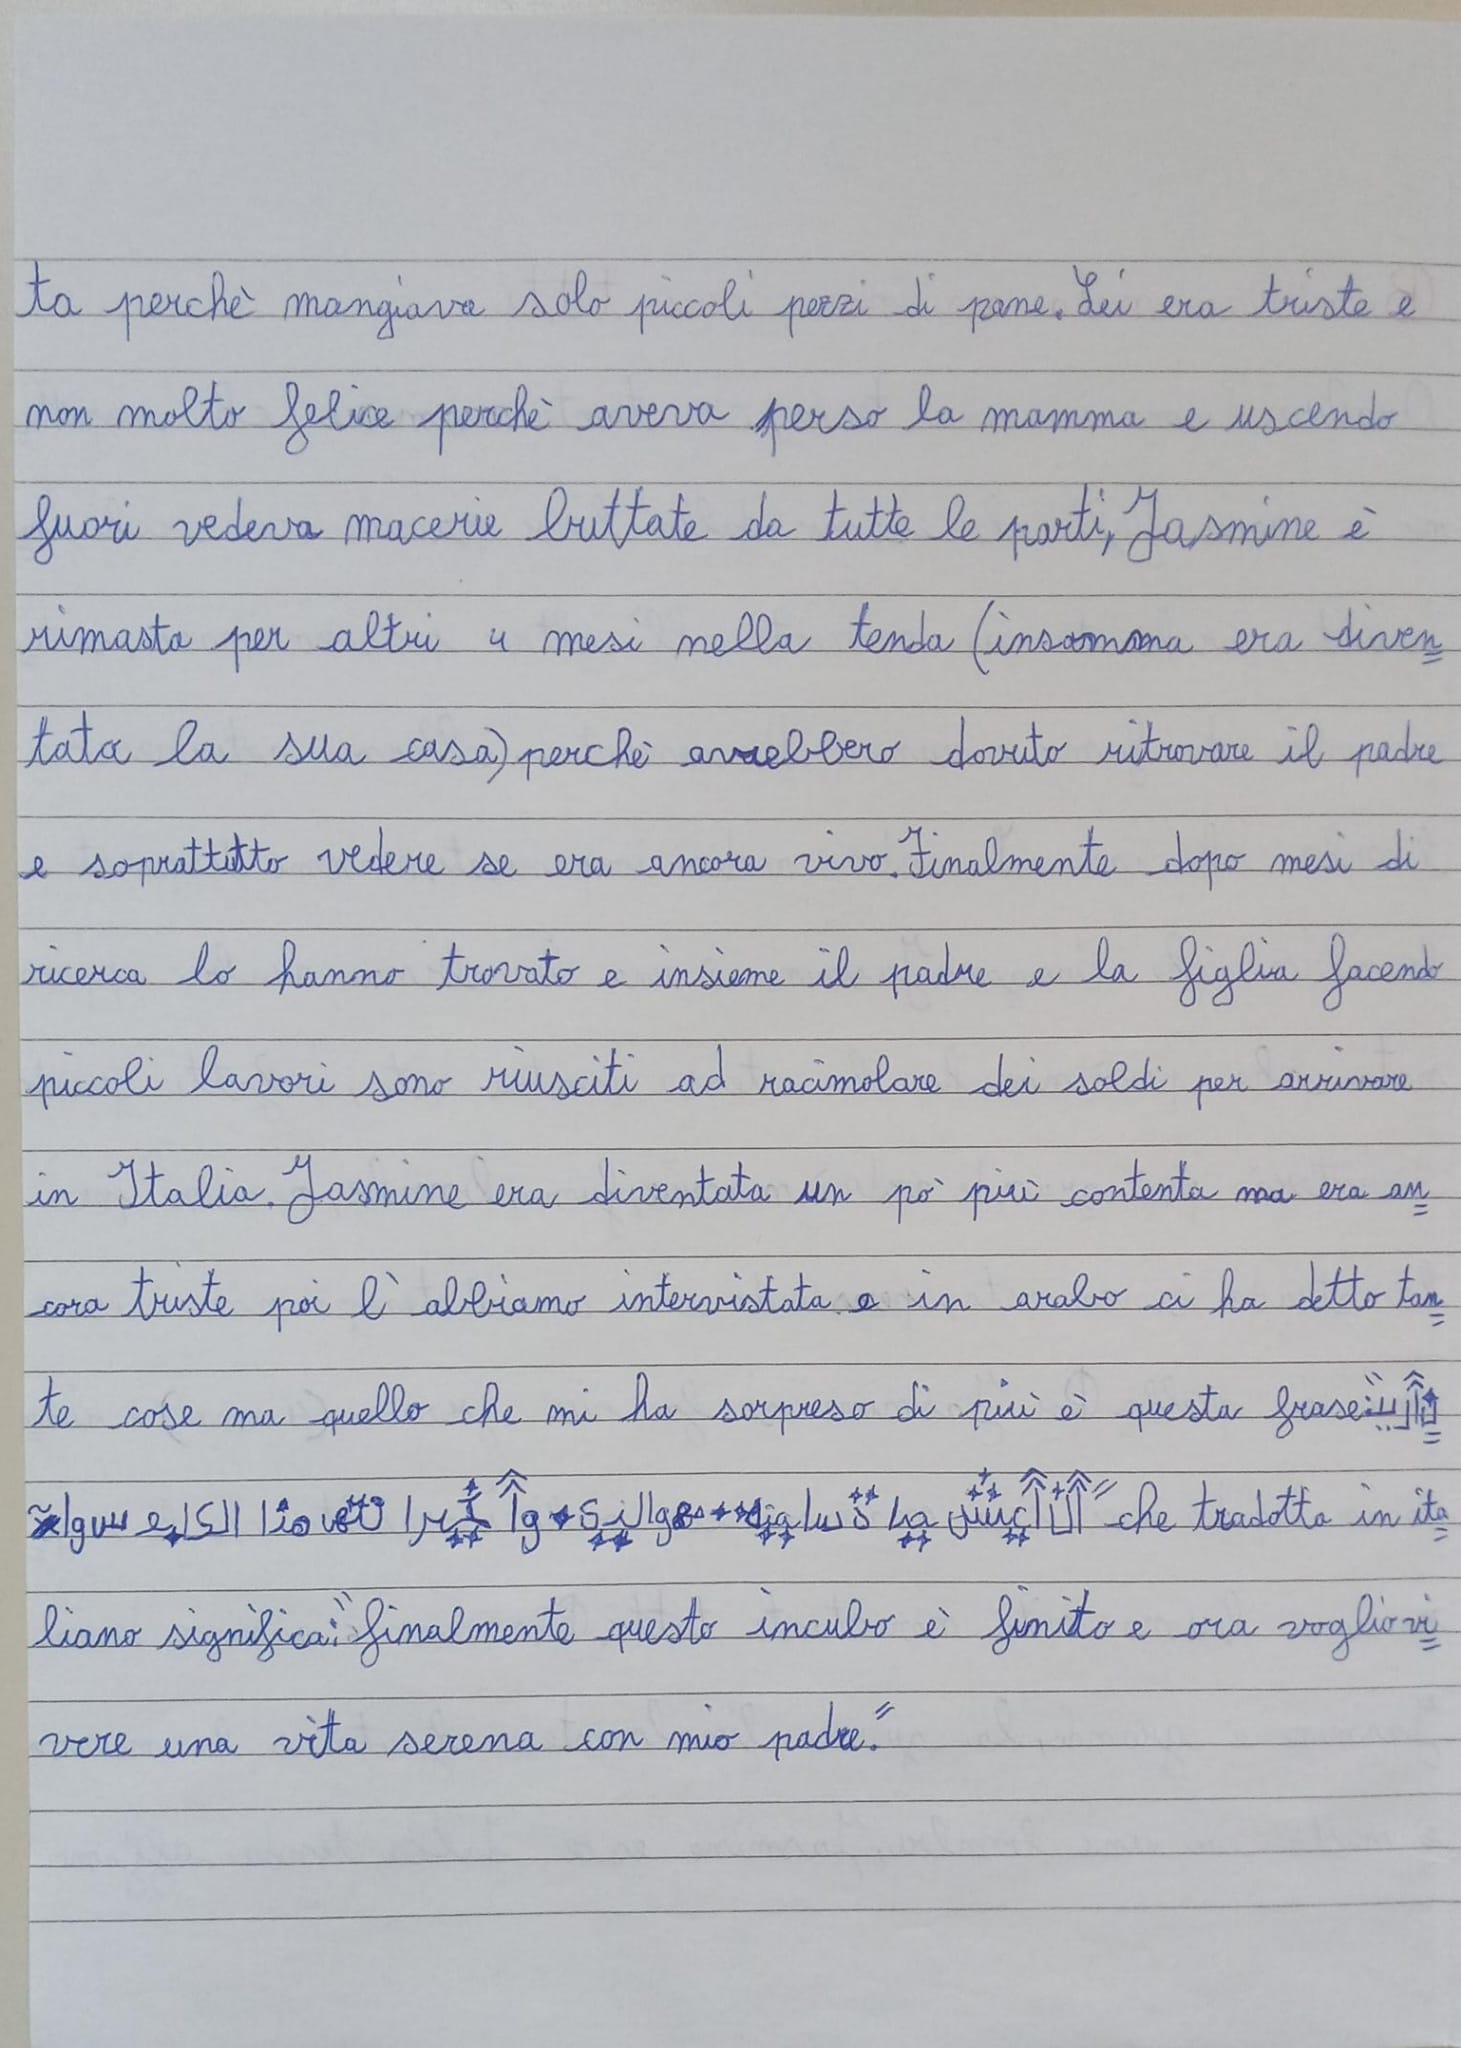 ta perchè mangiava solo piccoli pezzi di pane. Lei era triste e
non molto felice perchè aveva perso la mamma e uscendo
fuori vedeva macerie buttate da tutte le parti, Jasmine è
rimasta per altri 4 mesi nella tenda (insomma era diven=
tata la sua casa) perchè avrebbero dovuto ritrovare il padre
e soprattutto vedere se era ancora vivo. Finalmente dopo mesi di
ricerca lo hanno trovato e insieme il padre e la figlia facendo
piccoli lavori sono riusciti ad racimolare dei soldi per arrivare
in Italia. Jasmine era diventata un pò più contenta ma era an=
cora triste poi l' abbiamo intervistata e in arabo ci ha detto tan=
te cose ma quello che mi ha sorpreso di più è questa frase:"
" che tradotta in ita=
liano significa: "finalmente questo incubo è finito e ora voglio vi=
vere una vita serena con mio padre."